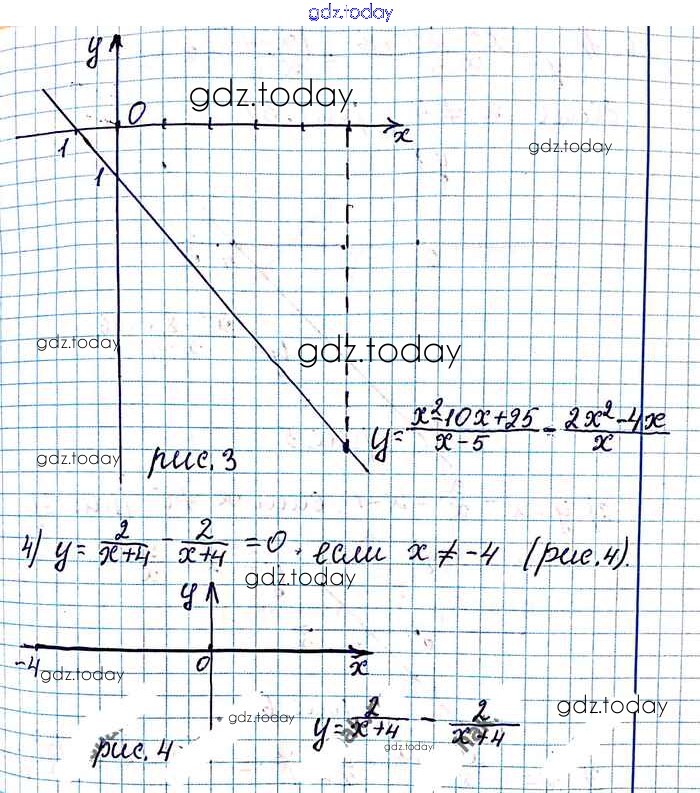 gdz.today
y
gdz.today
0
x
gdz.today
1
1
gdz.today
gdz.today
y = (x²-10x+25)/(x-5) - (2x²-4x)/x
gdz.today
рис. 3
4) y = 2/(x+4) - 2/(x+4) = 0, если x ≠ -4 (рис. 4).
gdz.today
y
-4
0
x
gdz.today
gdz.today
gdz.today
y = 2/(x+4) - 2/(x+4)
gdz.today
рис. 4